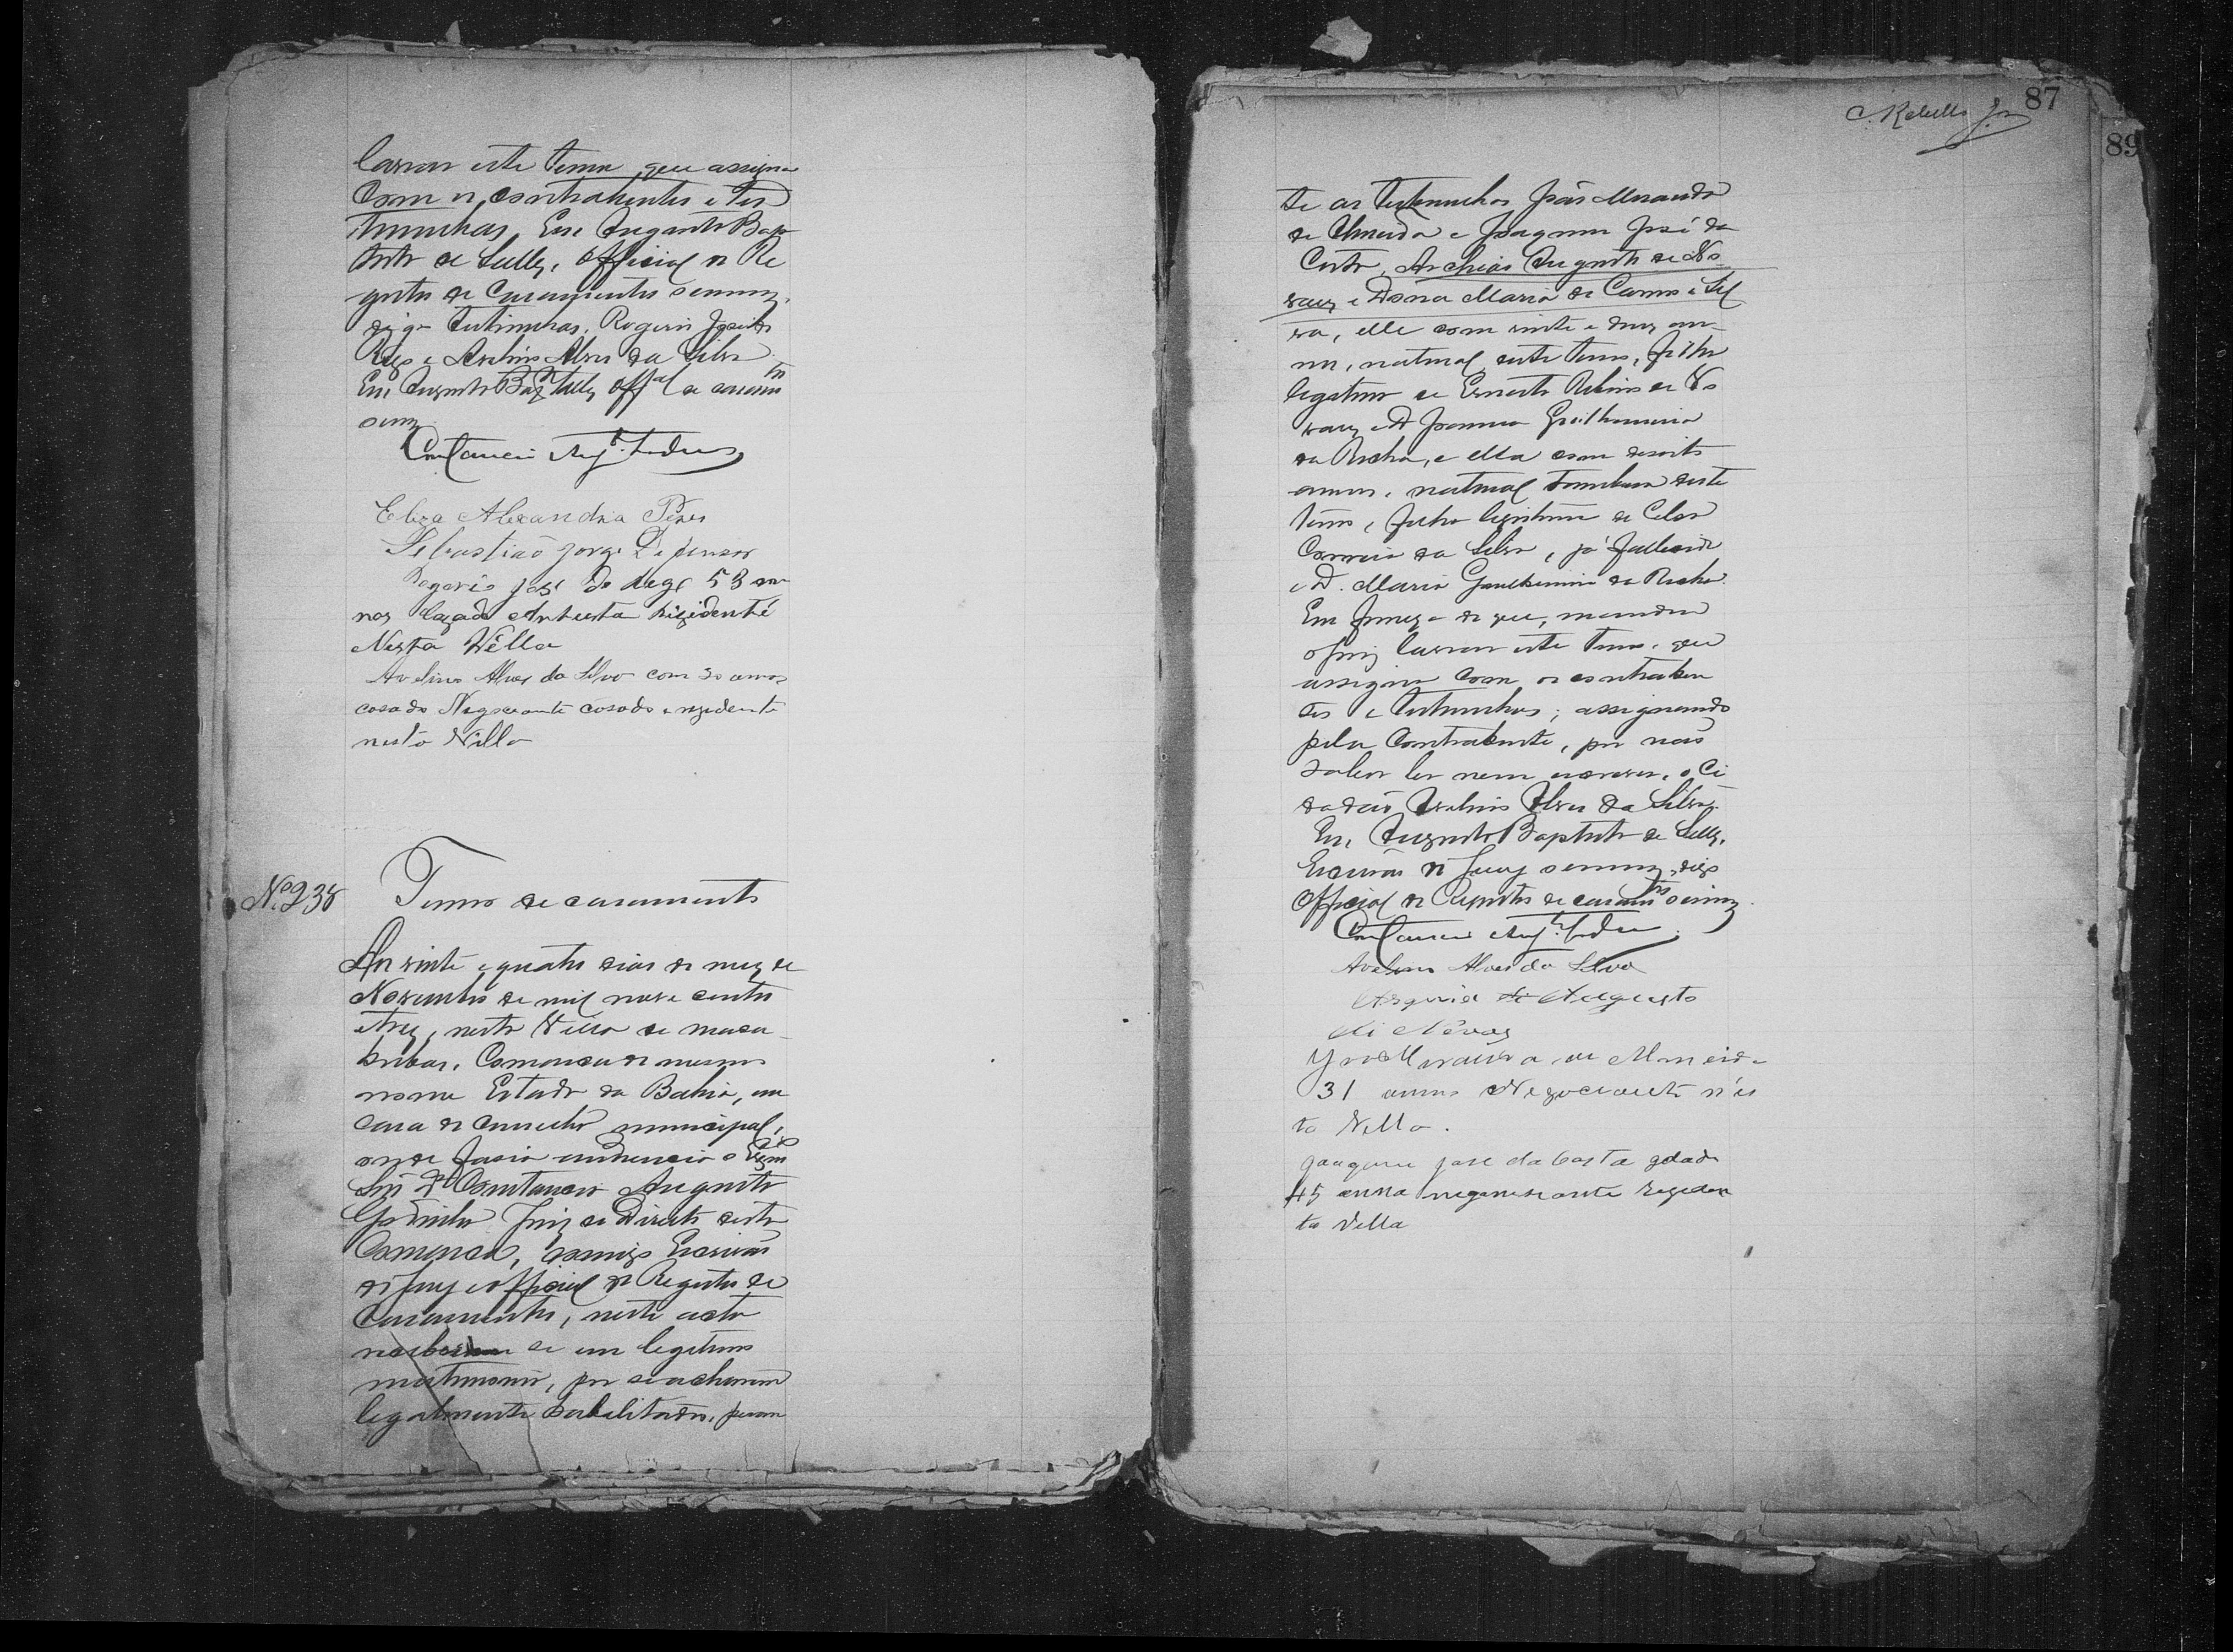 lavrar este termo, que assigna
com os contrahentes e tes
timunhas. Eu, Augusto Bap
tista de Lelles, Official do Re
gisto de Casamentos screvi,
digo testimunhas, Rogerio José do
Rego e Avelino Alves da Silva
Eu, Augusto Bapta Lelles, Offal de casamtos
screvi
Constancio Augto
Eliza Alexandra Pires
Sebastiaõ Jorge Defensor
Rogerio José do Rego 53 an
nos Cazado Artista rizidente
Nesta Villa
Avelino Alves da Silva com 30 annos
casado Negociante casado e rezidente
nesta Villa
No. 238
Termo de casamento
Aos vinte e quatro dias do mez de
Novembro de mil nove centos
e trez, nesta Villa de Maca
hubas, Comarca do mesmo
nome Estado da Bahia, em
casa do Concelho municipal,
onde fasia audiencia o Exmo
Snr Dr Constancio Augusto
Juiz de Direito desta
Comarca, commigo Escrivão
do Jury e official do Registo de
Casamentos, neste acto
receberam se em legitimo
matrimonio, por se acharem
legalmente habilitados, peran
C. Rebello Jor
87
89
te as testimunhas João Miranda
de Almeida e Joaquim José da
Costa, Archias Augusto de No
vaes e Dona Maria do Carmo e Sil
va, elle com vinte e dous an
nos, natural deste termo, filho
legitimo de Ernesto de No
vaes e D Joanna Guilhermina
da Rocha, e ella com desoito
annos, natural tambem deste
termo, filha legitima de Celso
Correia da Silva, já fallecido
e D. Maria Guilhermina da Rocha.
Em firmeza do que, mandou
o Juiz lavrar este termo, que
assigna com os contrahen
tes e testimunhas; assignando
pela Contrahente, por não
saber ler nem escrever, o Ci
dadão Avelino Alves da Silva.
Eu, Augusto Baptista de Lelles,
Escrivão do Jury screvi, digo
Official do Registo de casamtos screvi
Constancio Augto
Avelino Alves da Silva
Augusto
di Novaes
de Almeida
31 annos Negociante n'es
ta Villa.
Joaquim José da Costa idade
45 anna negoceante
ta Villa